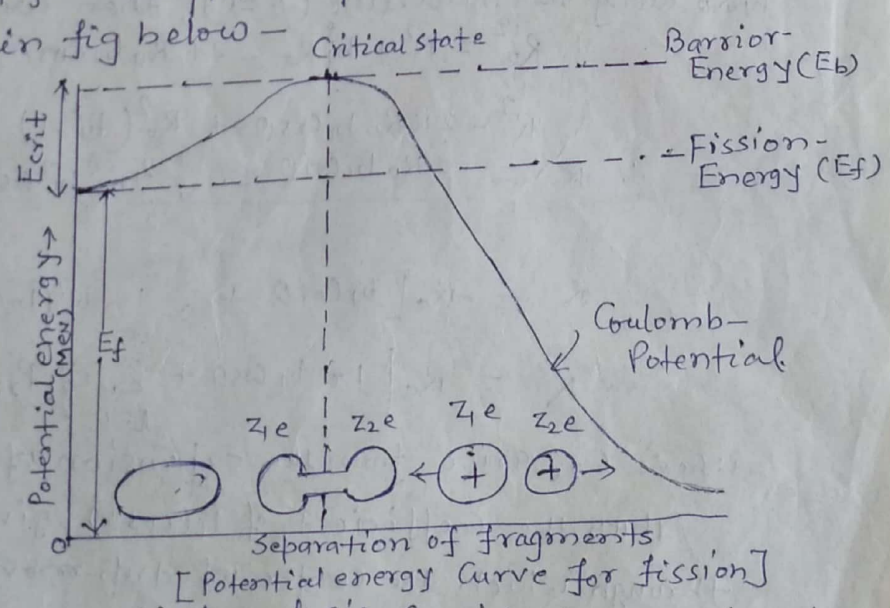 in fig below -
Critical state
Barrior-
Energy (Eb)
Ecrit
Fission-
Energy (Ef)
Potential energy →
(MeV)
Ef
Coulomb-
Potential
Z1e Z2e Z1e Z2e
+ +
0
Separation of fragments
[Potential energy Curve for fission]